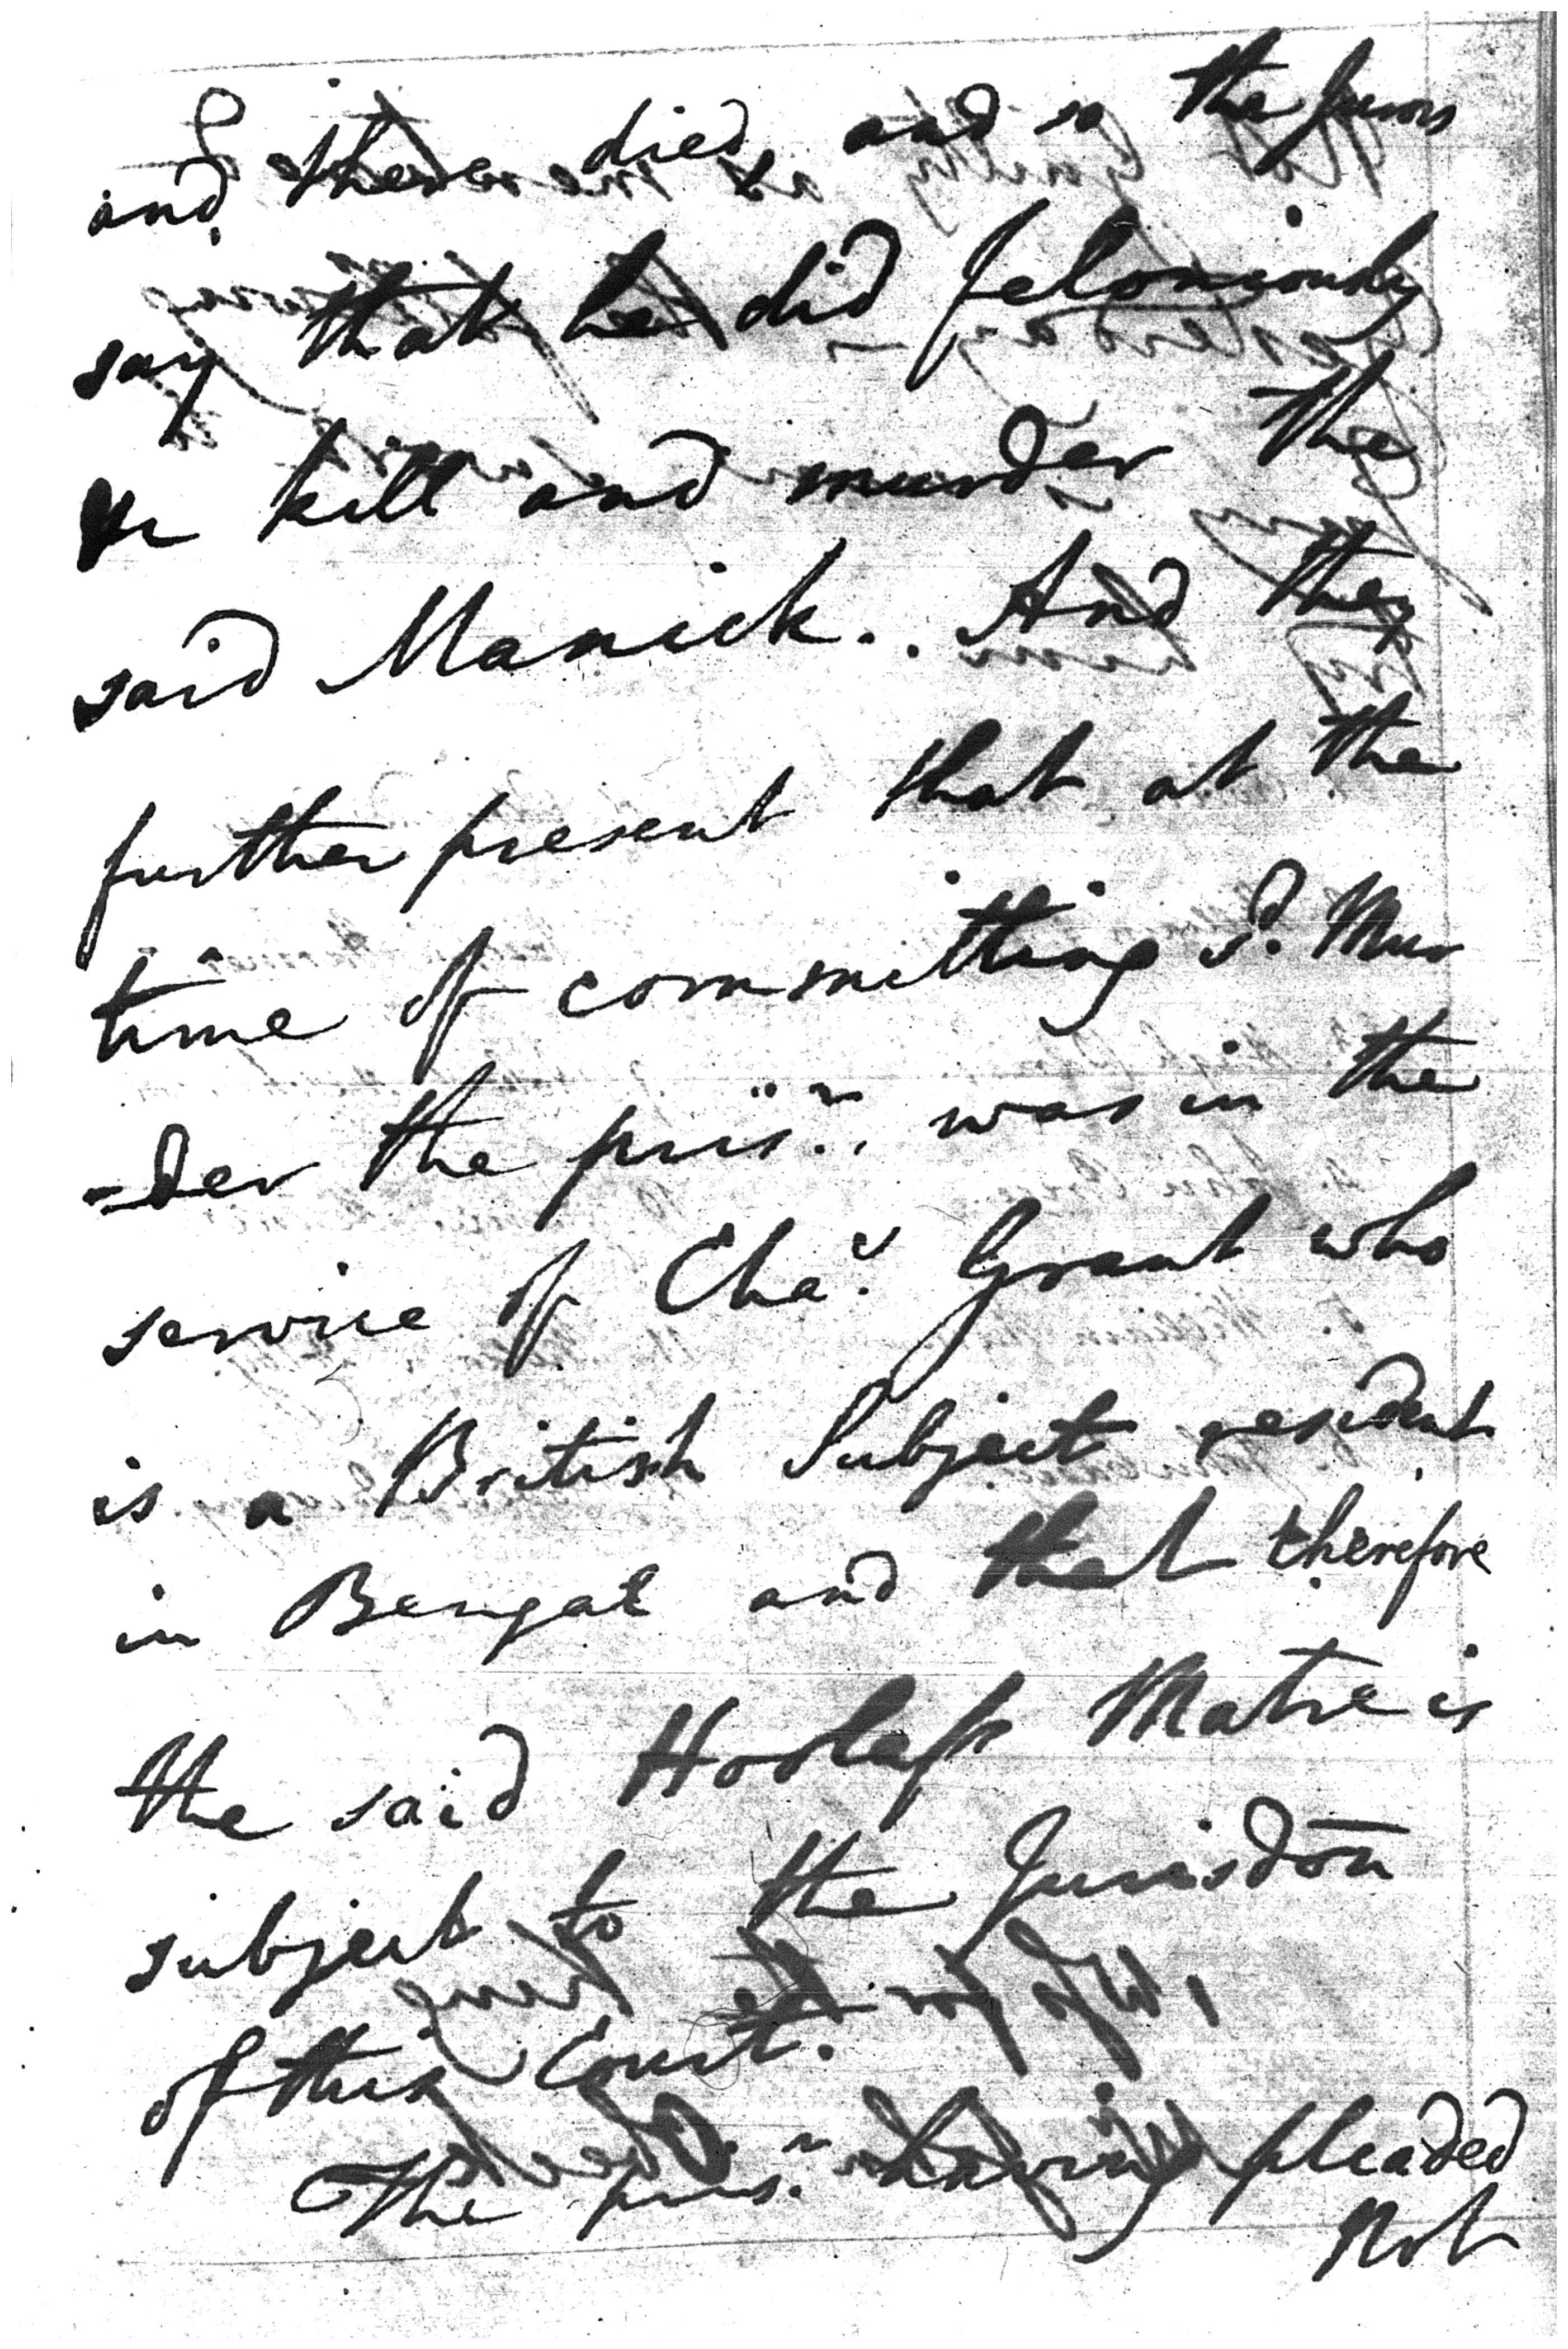 and there died, and so the jurors
say that he did feloniously
&c kill and murder the
said Manick.. And they
further present that at the
time of committing sd. Mur
=der the prisr. was in the
service of Chas. Grant who
is a British Subject resident
in Bengal and that therefore
the said Hoolass Matre is
subject to the Jurisdon
of this Court.
The prisr. having pleaded
Not